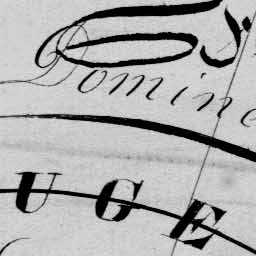 Domine
UGE